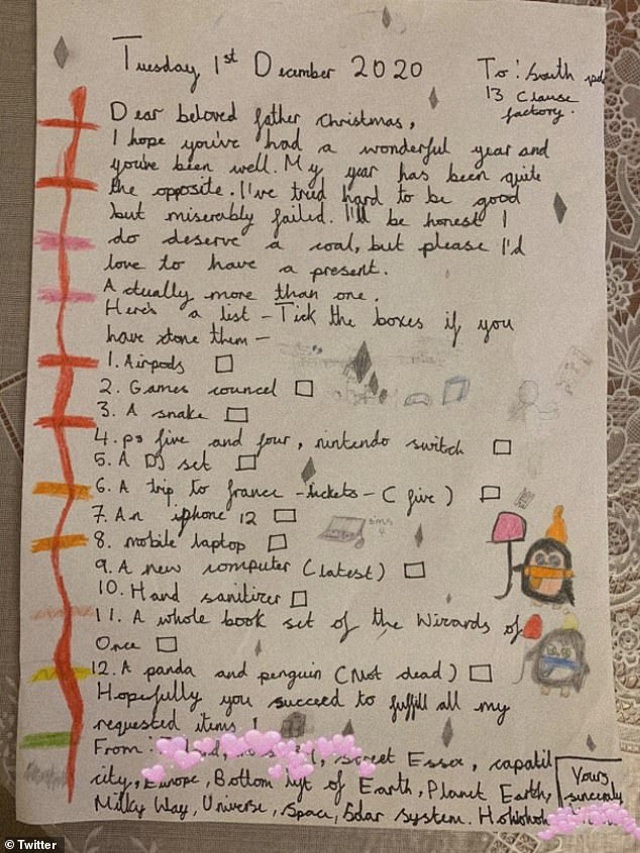 Tuesday 1st December 2020
To: South
13 Clause
factory.
Dear beloved father Christmas,
I hope you've had a wonderful year and
you've been well. My year has been quite
the opposite. I've tried hard to be good
but miserably failed. I'll be honest I
do deserve a coal, but please I'd
love to have a present.
Actually more than one.
Here's a list - Tick the boxes if you
have done them -
1. Airpods
2. Games councel
3. A snake
4. ps five and four, nintendo switch
5. A DJ set
6. A trip to france - tickets - (five)
7. An iphone 12
8. mobile laptop
9. A new computer (latest)
10. Hand sanitizer
11. A whole book set of the Wizards of
Once
12. A panda and penguin (Not dead)
Hopefully you succeed to fulfill all my
requested items!
From: Essex, capatil
city, Europe, Bottom of Earth, Planet Earth,
Milky Way, Universe, Space, Solar system. Hohohoh
Yours
sincerely
Twitter